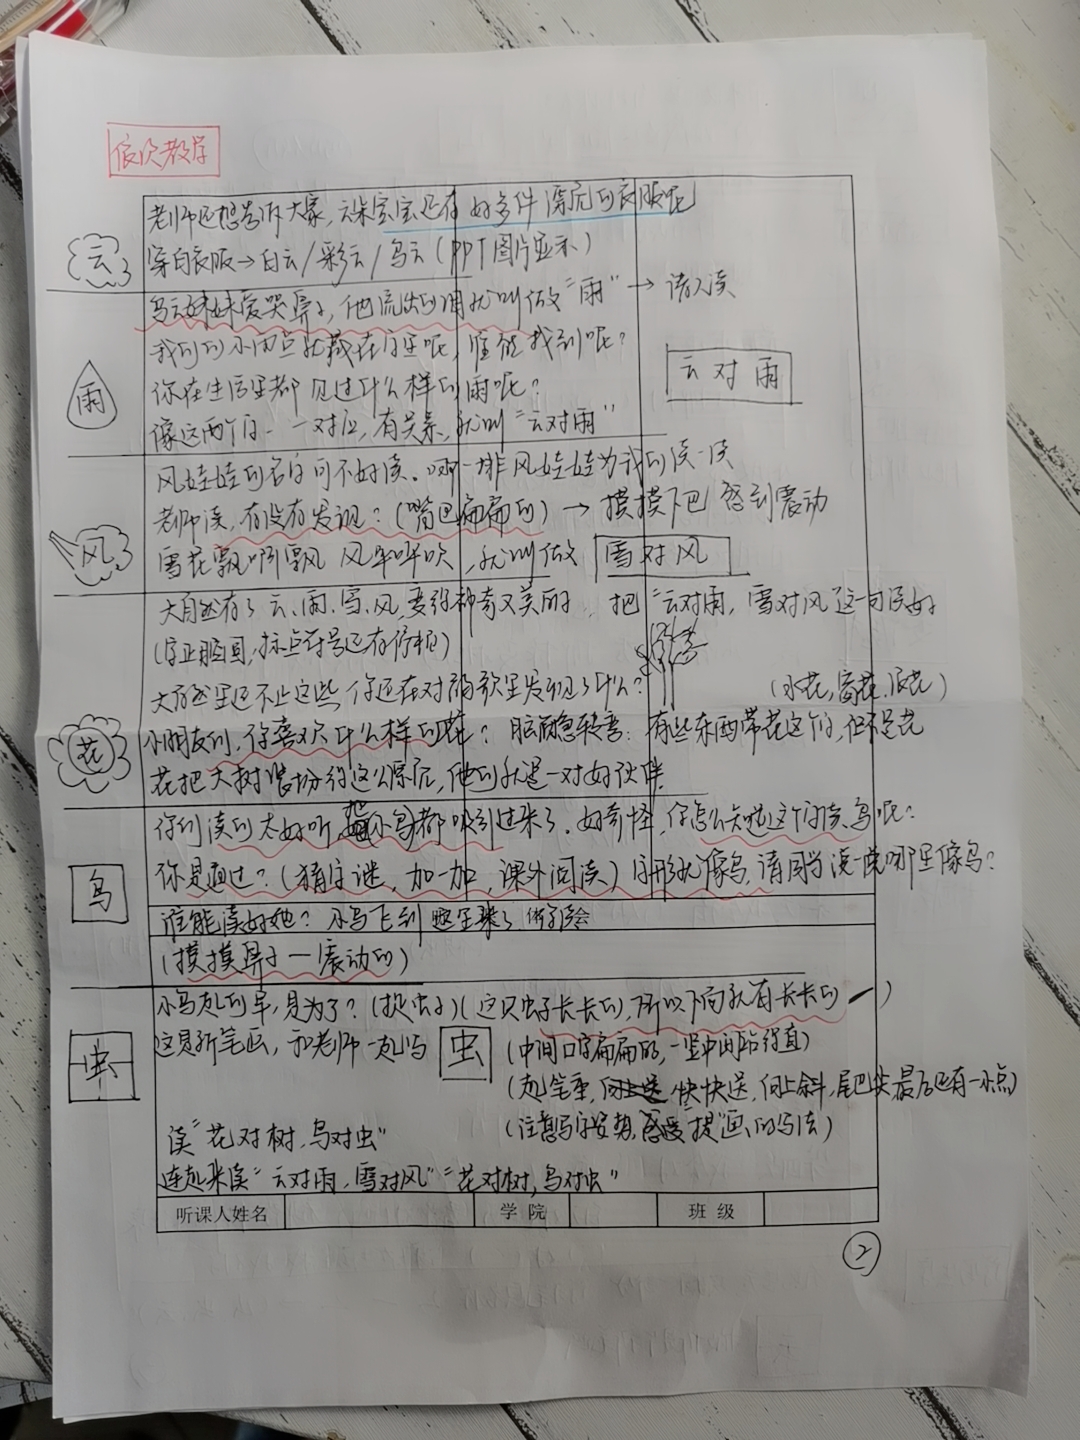 依次教学
老师还想告诉大家,云朵宝宝还有好多件漂亮的衣服呢
云
穿白衣服→白云/彩云/乌云(PPT图片显示)
乌云妹妹爱哭鼻子,他流出的泪就叫做“雨”→请人读
我们的小雨点就藏在字里呢,谁能找到呢?
雨
你在生活里都见过什么样的雨呢?
云对雨
像这两个字一一对应,有关系,就叫“云对雨”
风娃娃的名字可不好读。哪一排风娃娃为我们读一读
老师读,有没有发现?(嘴巴扁扁的)→摸摸下巴 感到震动
风
雪花飘啊飘 风呼呼吹,就叫做 雪对风
大自然有了云、雨、雪、风,变得神奇又美丽,把“云对雨,雪对风”这一句读好
(字正腔圆,标点符号还有停顿)
大自然里还不止这些 你还在对韵歌里发现了什么?
(水花,窗花,浪花)
小朋友们,你喜欢什么样的花?脑筋急转弯:有些东西带花这个字,但不是花
花
花把大树装扮得这么漂亮,他们就是一对好伙伴
你们读的太好听,小鸟都吸引过来了。好奇怪,你怎么知道这个字读鸟呢?
鸟
你是通过?(猜字谜,加一加,课外阅读)字形就像鸟,请同学说一说哪里像鸟?
谁能读好她?小鸟飞到 来了
(摸摸鼻子—震动的)
小鸟起的早,是为了?(捉虫子)(这只虫子长长的,所以下面就有长长的㇀)
虫
这是新笔画,和老师一起写 虫 (中间口字扁扁的,一竖中间站得直)
(起笔重,快快送,向上斜,尾巴尖最后还有一小点)
(注意写字姿势,感受“提”画的写法)
读“花对树,鸟对虫”
连起来读“云对雨,雪对风”“花对树,鸟对虫”
听课人姓名 学院 班级
2